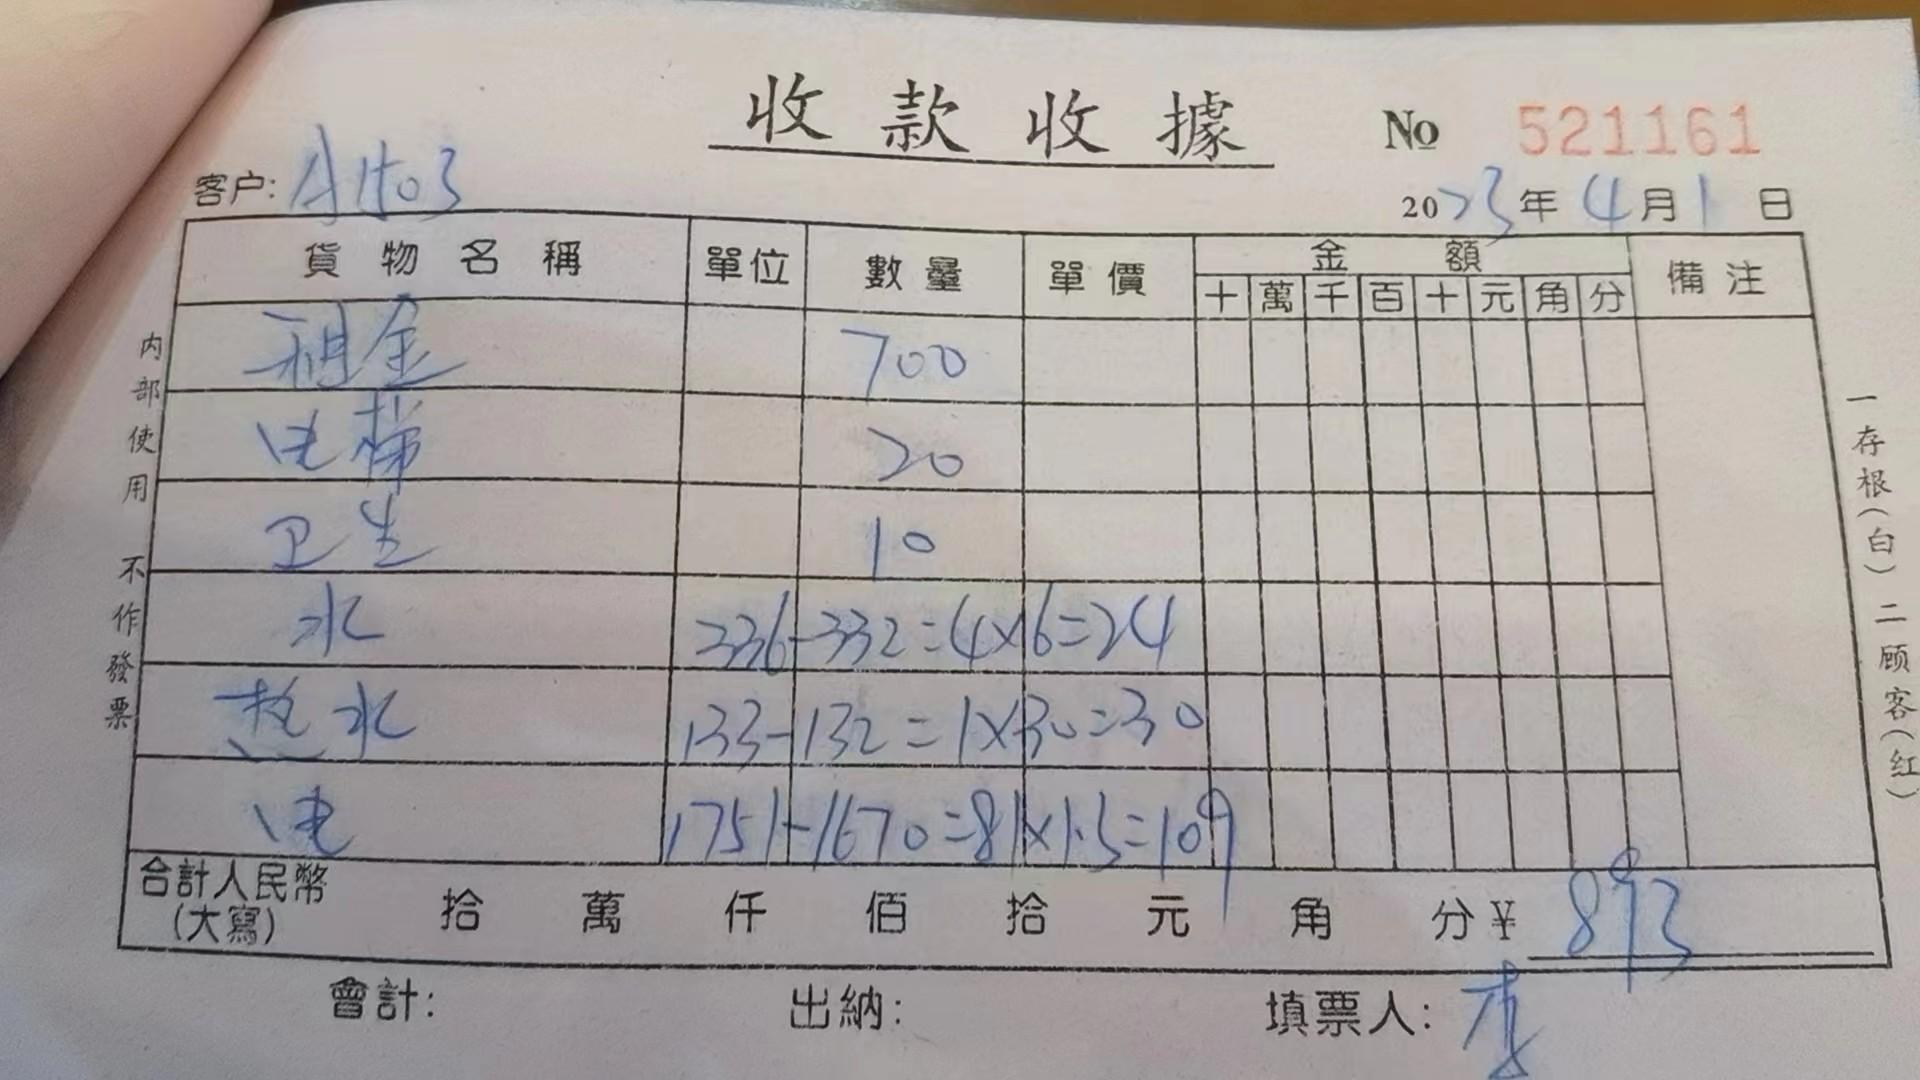 收款收據 No 521161
客户: A1403 2023年4月1日
貨物名稱 單位 數量 單價 金額 備注
十 萬 千 百 十 元 角 分
租金 700
电梯 20
卫生 10
水 336-332=4×6=24
热水 133-132=1×30=30
电 1751-1670=81×1.5=109
合計人民幣(大寫) 拾 萬 仟 佰 拾 元 角 分 ¥ 893
會計: 出納: 填票人: 李
内部使用 不作發票
一存根(白) 二顾客(红)